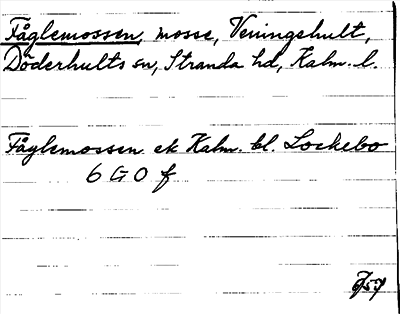 Fåglemossen, mosse, Veningshult,
Döderhults sn, Stranda hd, Kalm. l.
Fåglemossen ek Kalm. bl. Lockebo
6 G O f